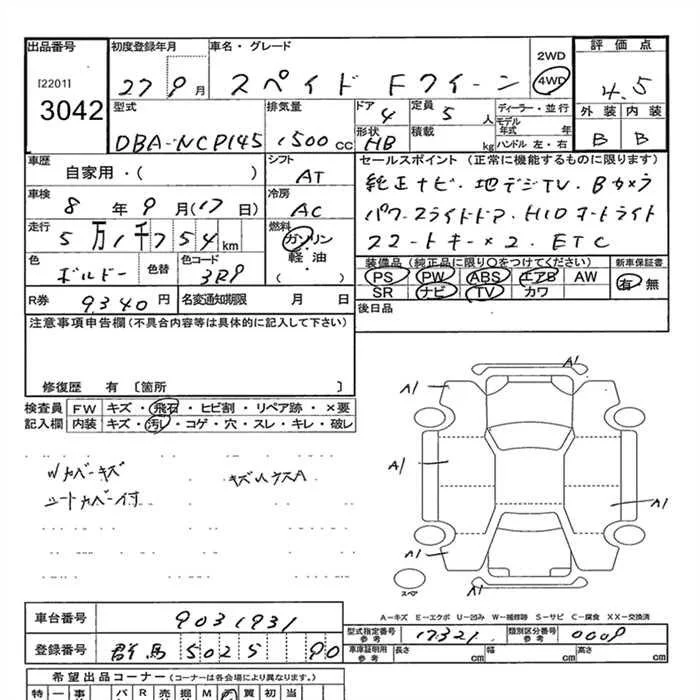 出品番号 初度登録年月 車名・グレード 2WD 評価点
[2201] 27 9月 スペイド Fクイーン 4WD 4.5
3042 型式 排気量 ドア 4 定員 5人 ディーラー・並行 外装 内装
モデル年式 年
DBA-NCP145 1500cc 形状 HB 積載 kg ハンドル 左・右 B B
車歴 自家用・( ) シフト AT セールスポイント (正常に機能するものに限ります)
車検 8年9月(17日) 冷房 AC 純正ナビ・地デジTV・Bカメラ
パワースライドドア・HIDオートライト
走行 5万1千754km 燃料 ガソリン・軽油・( ) スマートキー×2・ETC
色 ボルドー 色替 色コード 3R9 装備品 (純正品に限り○をつけてください) 新車保証書
PS PW ABS エアB AW 有 無
R券 9,340円 名変通知期限 月 日 SR ナビ TV カワ
注意事項申告欄(不具合内容等は具体的に記入して下さい) 後日品
修復歴 有 〔箇所 〕
検査員 FW キズ・飛石・ヒビ割・リペア跡・×要
記入欄 内装 キズ・汚レ・コゲ・穴・スレ・キレ・破レ
A1
A1
Wカバーキズ キズハケスA
シートカバー付
A1
A1
A1
スペア A1
A-キズ E-エクボ U-凹み W-補修跡 S-サビ C-腐食 XX-交換済
車台番号 9031931
型式指定番号 参考 17321 類別区分番号 参考 0009
登録番号 群馬 502 90
車庫証明用 参考 長さ cm 幅 cm 高さ cm
希望出品コーナー (コーナーは各会場により異なります。)
特 一 事 パ R 売 掘 M 買 初 当